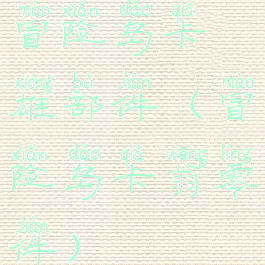 mào xiǎn dǎo qiǎ
冒险岛卡
xióng bù jiàn mào
雄部件（冒
xiǎn dǎo qiǎ wēng líng
险岛卡翁零
jiàn
件）